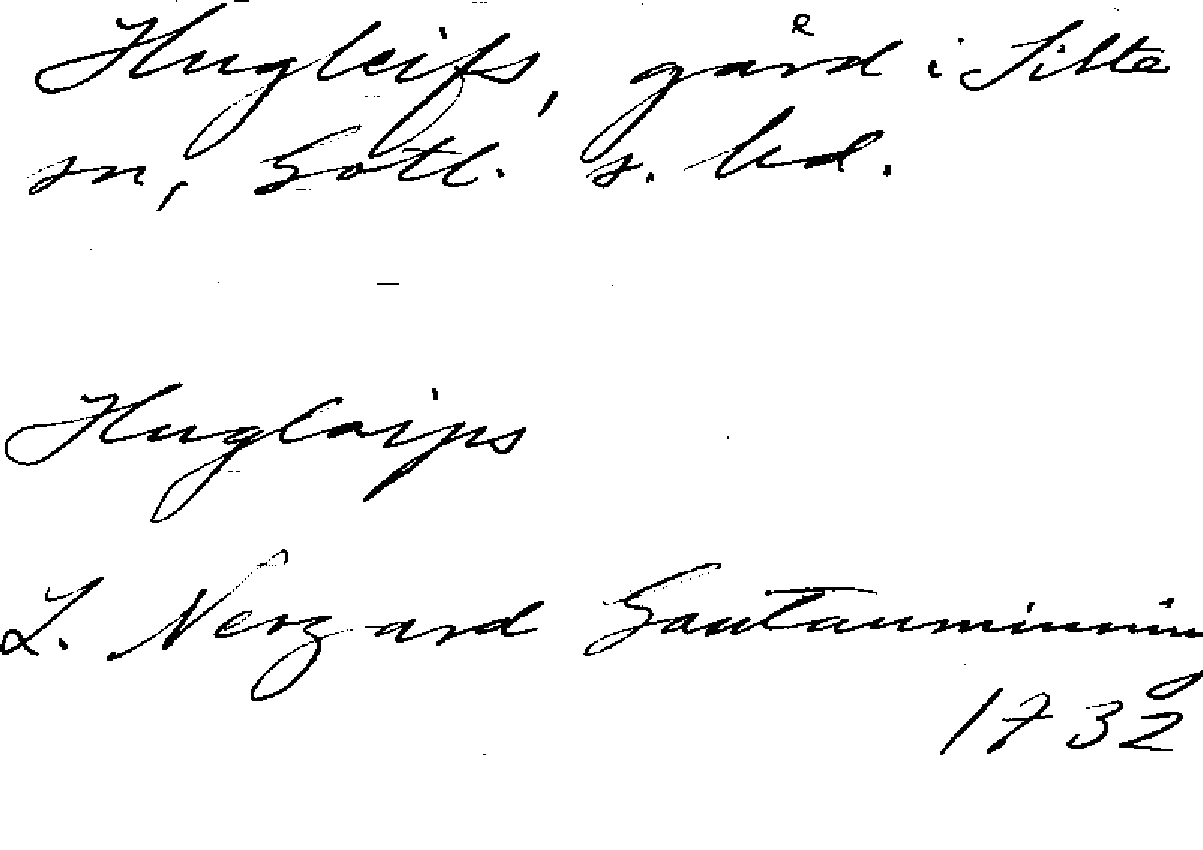 Hugleifs, gård i Silte
sn, Gotl. s. hd.
Huglaips
L. Neogard Gautauminning
1732